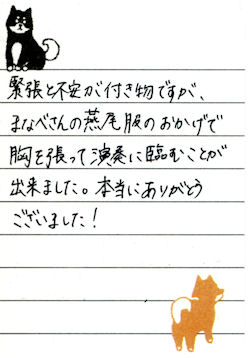 緊張と不安が付き物ですが、
まなべさんの燕尾服のおかげで
胸を張って演奏に臨むことが
出来ました。本当にありがとう
ございました！